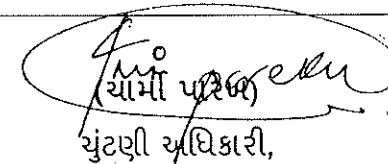 (ચાર્મી પારેખ)
ચુંટણી અધિકારી,